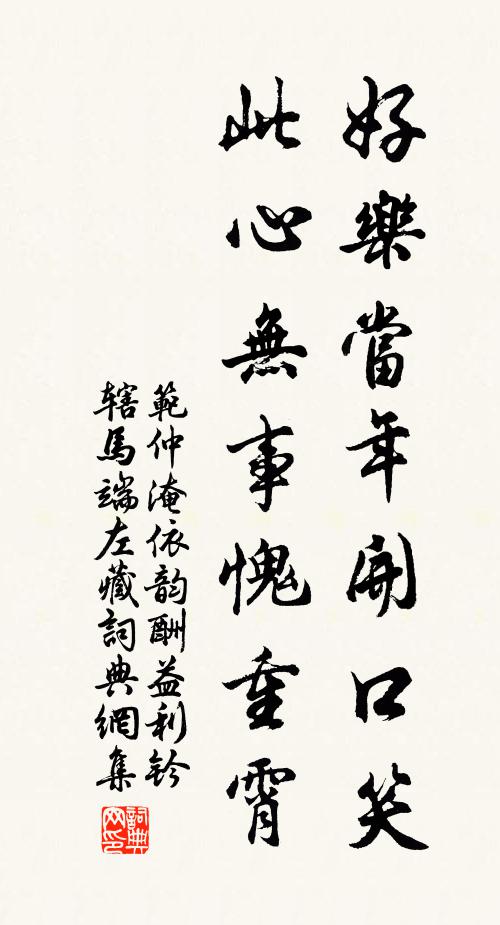 好樂當年開口笑
此心無事愧重霄
範仲淹依韵酬益利鈐
辖馬端左藏詞典網集
詞典网印